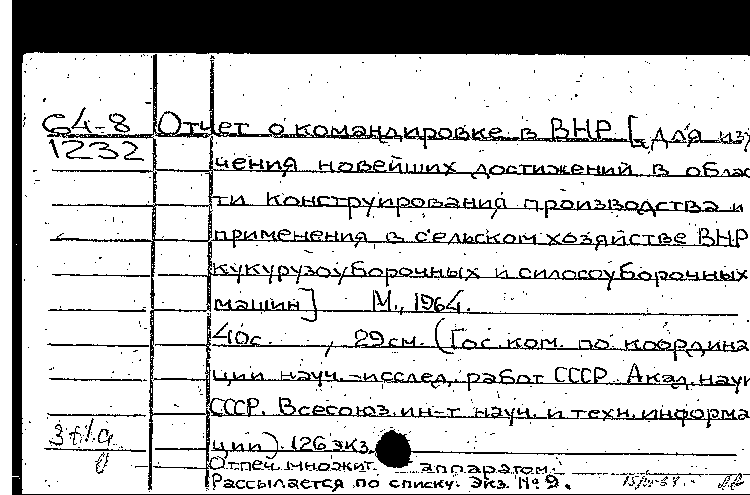 64-8 Отчет о командировке в ВНР [для изу
1232
чения новейших достижений в облас
ти конструирования производства и
применения в сельском хозяйстве ВНР
кукурузоуборочных и силосоуборочных
машин] М., 1964.
40с. , 29см. (Гос. ком. по координа
ции науч.-исслед. работ СССР. Акад. наук
СССР. Всесоюз. ин-т науч. и техн. информа
ции). 126 экз.
Отпеч. множит. аппаратом.
Рассылается по списку. Экз. №9.